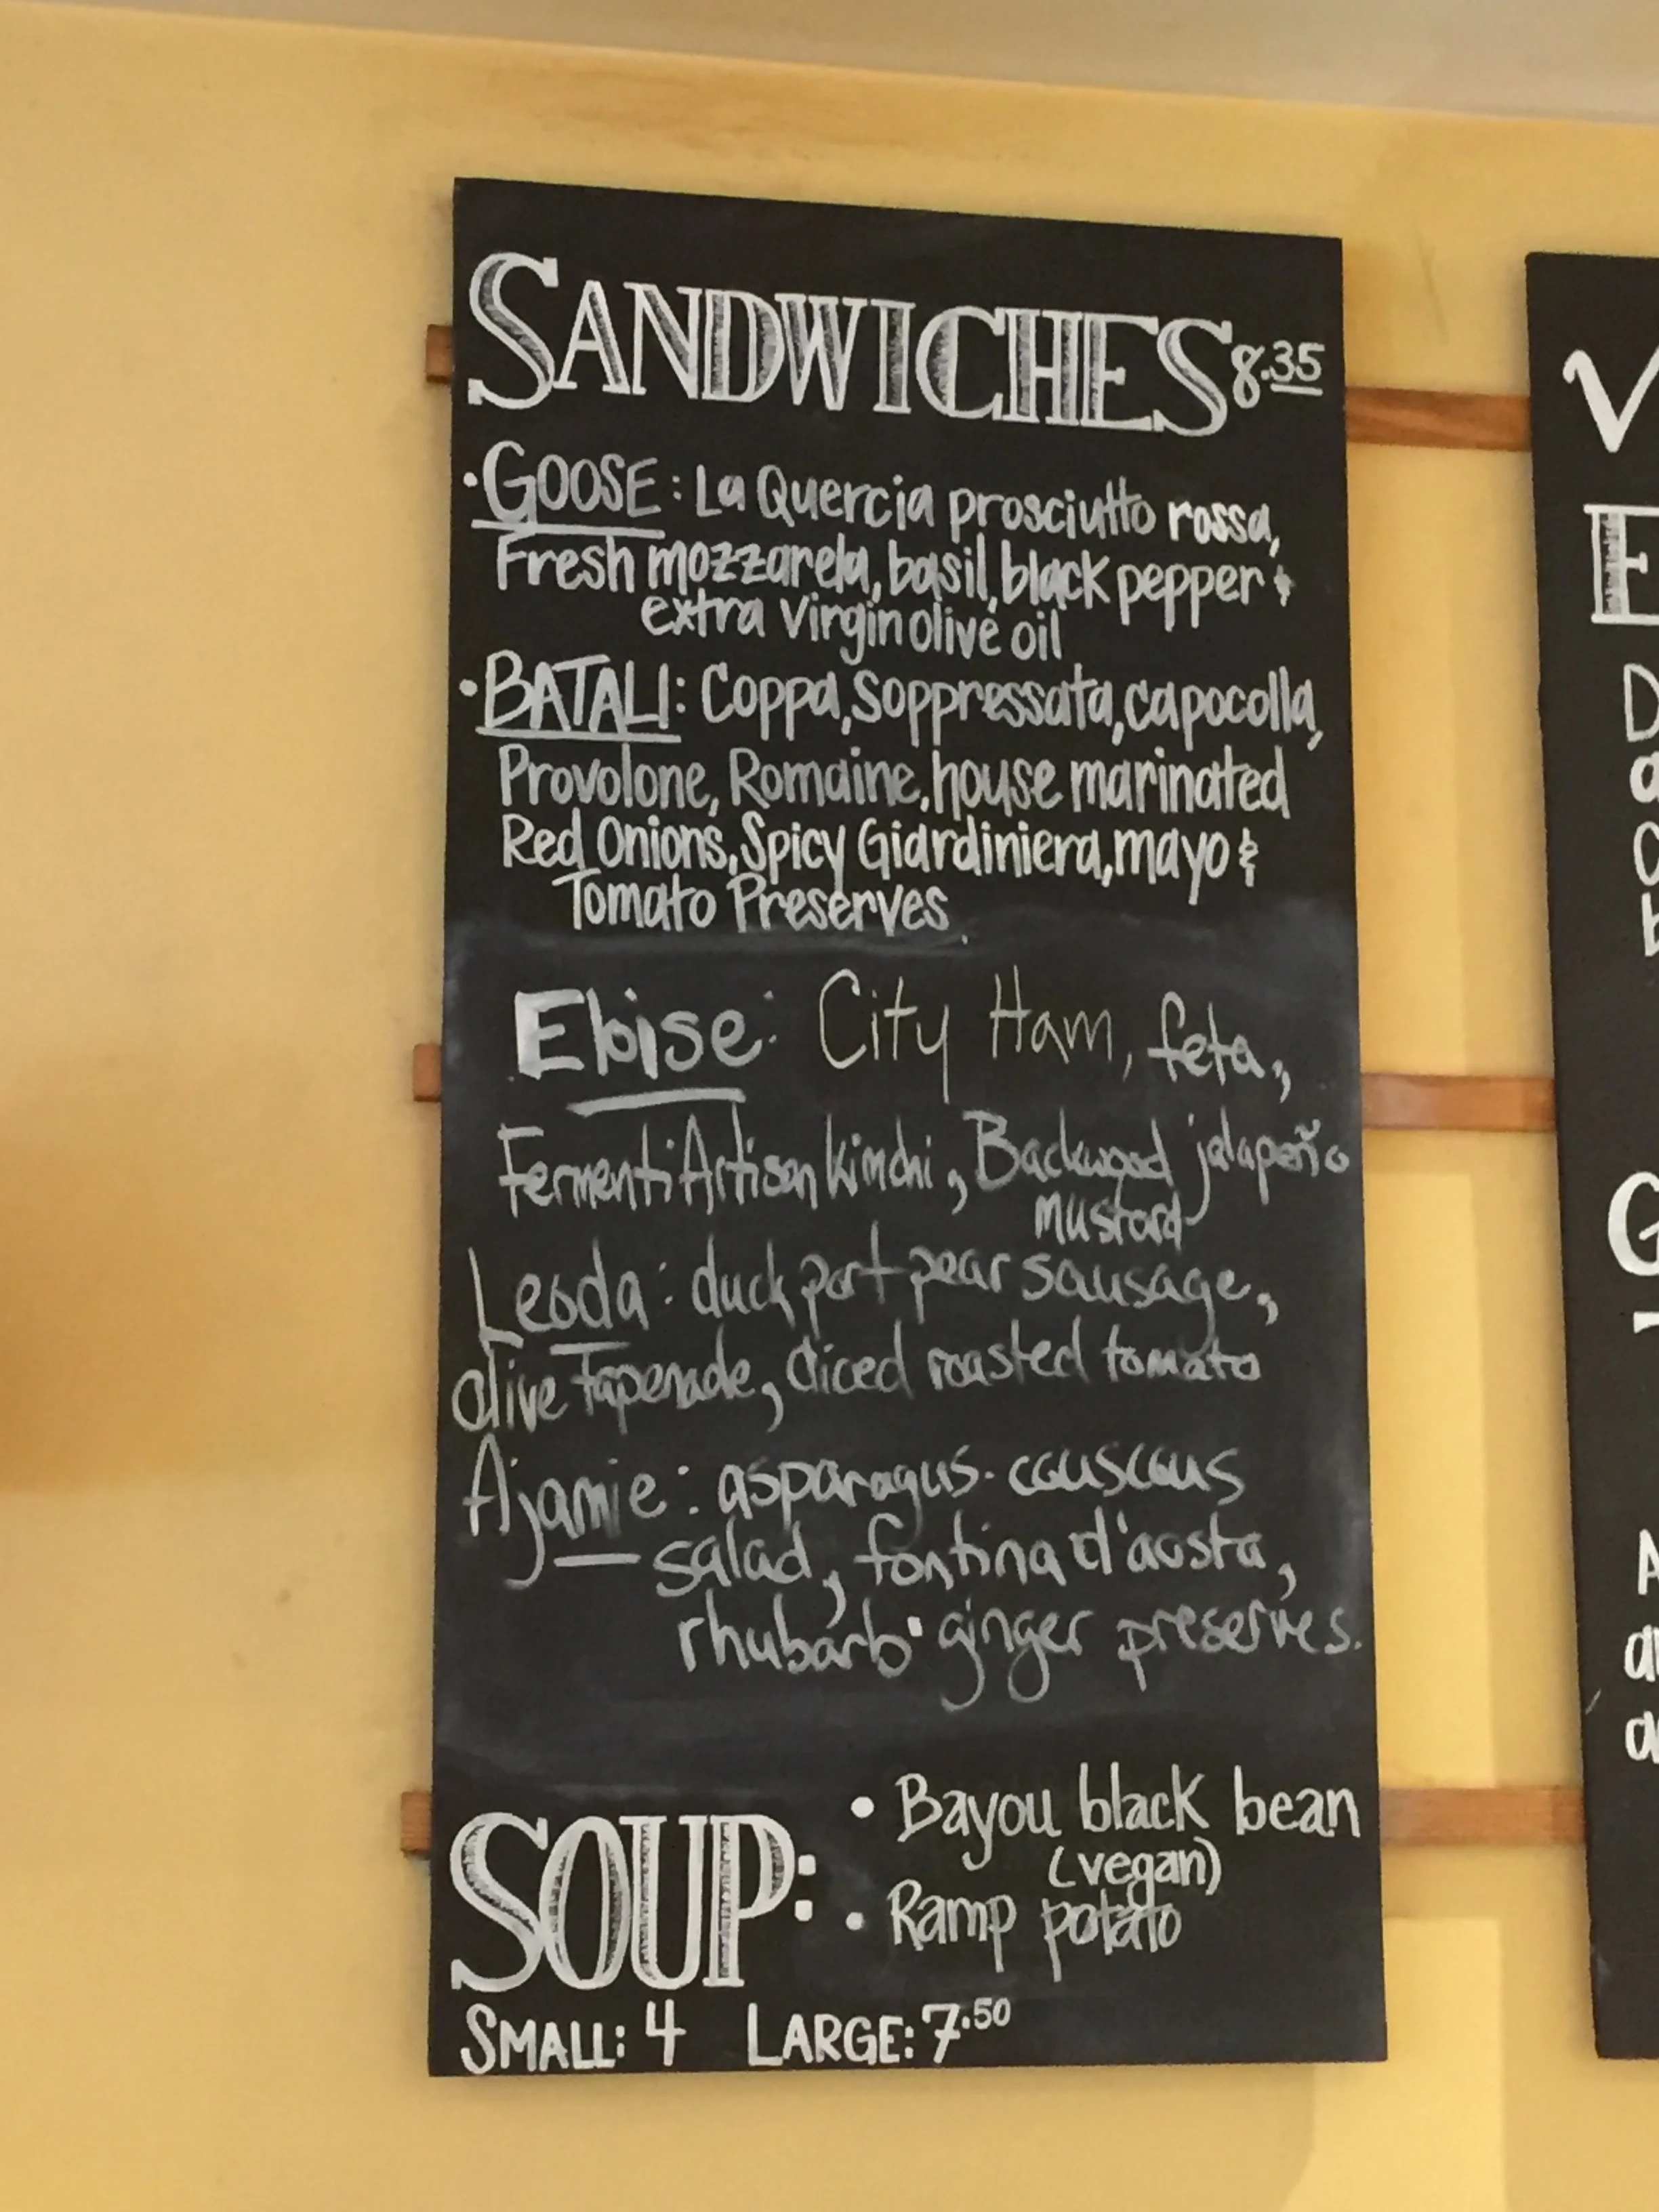 SANDWICHES 8.35
• GOOSE: La Quercia prosciutto rossa,
Fresh mozzarella, basil, black pepper &
extra virgin olive oil
• BATALI: Coppa, Soppressata, capocolla,
Provolone, Romaine, house marinated
Red Onions, Spicy Giardiniera, mayo &
Tomato Preserves
Eloise: City Ham, feta,
Fermenti Artisan Kimchi, Backwood jalapeño
mustard
Leoda: duck port pear sausage,
olive tapenade, diced roasted tomato
Ajamie: asparagus·couscous
salad, fontina d'aosta,
rhubarb·ginger preserves.
SOUP:
• Bayou black bean
(vegan)
• Ramp potato
SMALL: 4 LARGE: 7.50